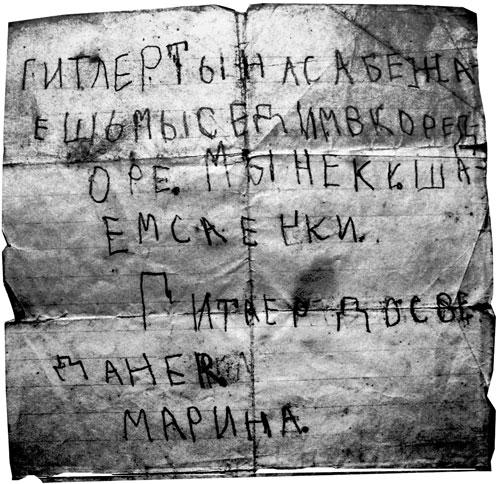 ГИТЛЕР ТЫ НАС АБЕЖА
ЕШЬ МЫ СЕДИМ В КОРЕД
ОРЕ. МЫ НЕ К К.ША-
ЕМ САЕНКИ.
ГИТЛЕР ДОСВЕ
ДАНЕЯ.
МАРИНА.